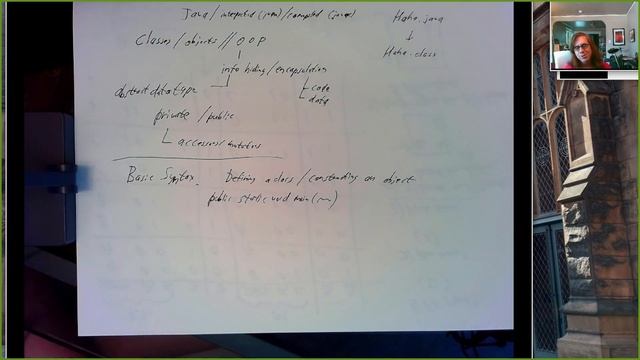 Java / interpreted (java) / compiled (javac)
Haha.java
↓
Haha.class
Classes / objects // OOP
info hiding / encapsulation
abstract data type
code
data
private / public
accessors/mutators
Basic Syntax. Defining a class / constructing an object
public static void main(~)